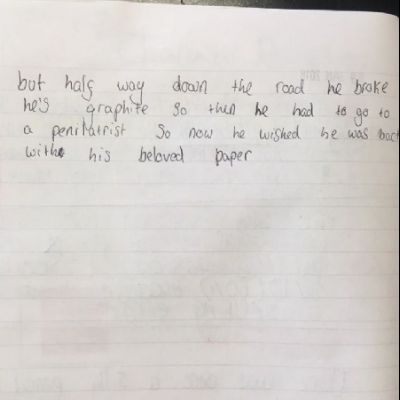 but half way down the road he broke
he's graphite so then he had to go to
a penitatrist so now he wished he was back
with his beloved paper